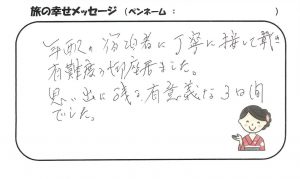 旅の幸せメッセージ（ペンネーム：　　　　　　　　）
年配の宿泊者に丁寧に接して頂き
有難度う御座居ました。
思い出に残る有意義な3日間
でした。